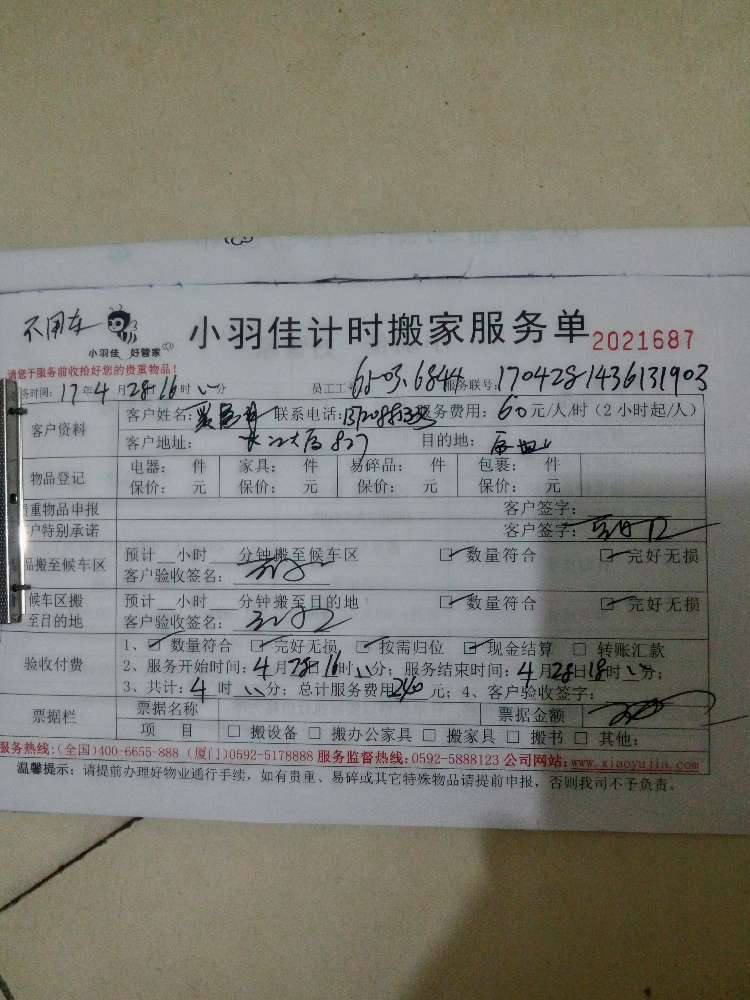 不用车
小羽佳 好管家
小羽佳计时搬家服务单 2021687
请您于服务前收给好您的贵重物品!
务时间: 17年4月28日16时 分 员工工 6503.6844 服务联号: 1704281436131903
客户资料 客户姓名: 联系电话: 服务费用: 60元/人/时(2小时起/人)
客户地址: 长江大厦827 目的地:
物品登记 电器: 件 家具: 件 易碎品: 件 包裹: 件
保价: 元 保价: 元 保价: 元 保价: 元
贵重物品申报 客户签字:
户特别承诺 客户签字:
品搬至候车区 预计__小时__分钟搬至候车区 ☑数量符合 ☑完好无损
客户验收签名:
候车区搬至目的地 预计__小时__分钟搬至目的地 ☑数量符合 ☑完好无损
客户验收签名:
验收付费 1、☑数量符合 ☑完好无损 ☑按需归位 ☑现金结算 □转账汇款
2、服务开始时间: 4月28日16时 分; 服务结束时间: 4月28日18时 分;
3、共计: 4时 分; 总计服务费用240元; 4、客户验收签字:
票据栏 票据名称 票据金额
项 目 □搬设备 □搬办公家具 □搬家具 □搬书 □其他:
服务热线:(全国)400-6655-888 (厦门)0592-5178888 服务监督热线:0592-5888123 公司网站:www.xiaoyujia.com
温馨提示: 请提前办理好物业通行手续,如有贵重、易碎或其它特殊物品请提前申报,否则我司不予负责。